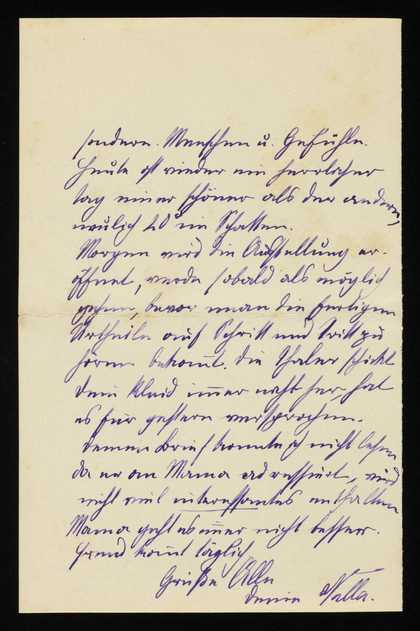 sondern. Menschen u. Gefühle.
Heute ist wieder ein herrlicher
tag einer schöner als der andere,
neulich 20° im Schatten.
Morgen wird die Ausstellung er-
öffnet, werde sobald als möglich
gehen, bevor man die fertigen
Urtheile auf Schritt und tritt zu
hören bekomt. Die Thaler schickt
Dein Kleid imer nicht her, hat
es für gestern versprochen.
Deinen Brief konnte ich nicht lesen
da er an Mama adressiert, wird
nicht viel interessantes enthalten
Mama geht es imer nicht besser.
Freud komt täglich
Grüße Alle
Deine Nella.